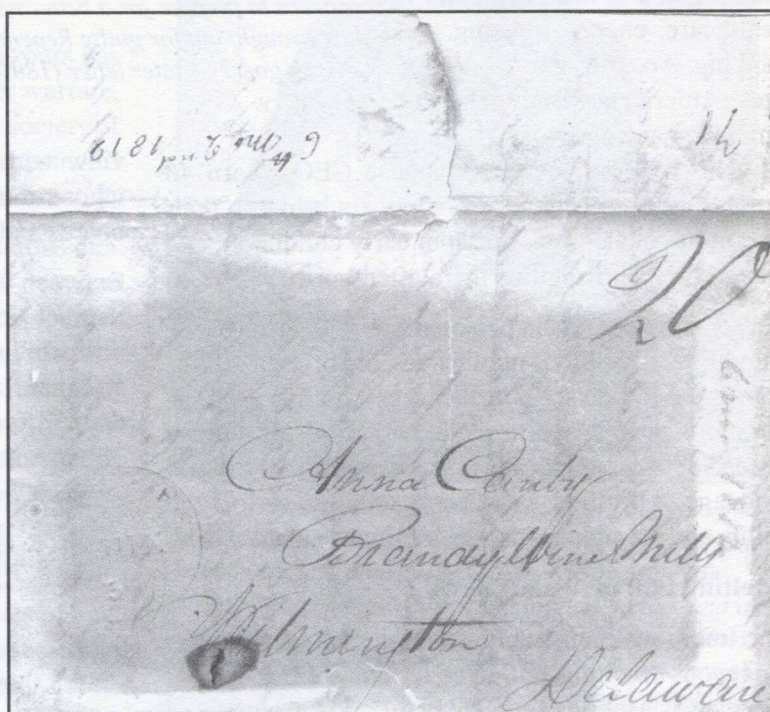 6th Mo 2nd 1812
71
20
Anna Canby
Brandywine Mills
Wilmington
Delaware
6 mo 1812